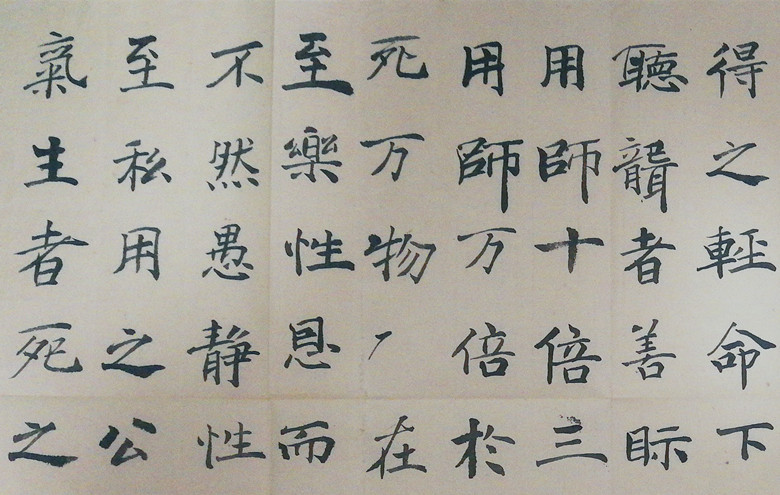 得之輕命下
聽聾者善眎
用師十倍三
用師万倍於
死万物在
至樂性恩而
不然愚静性
至私用之公
氣生者死之